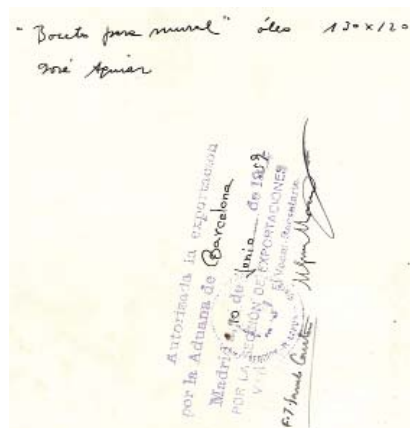 "Boceto para mural" óleo 130 x 120
José Aguiar
Autorizada la exportación
por la Aduana de Barcelona
Madrid 10 de Junio de 1959
POR LA SECCIÓN DE EXPORTACIONES
El Vocal-Secretario